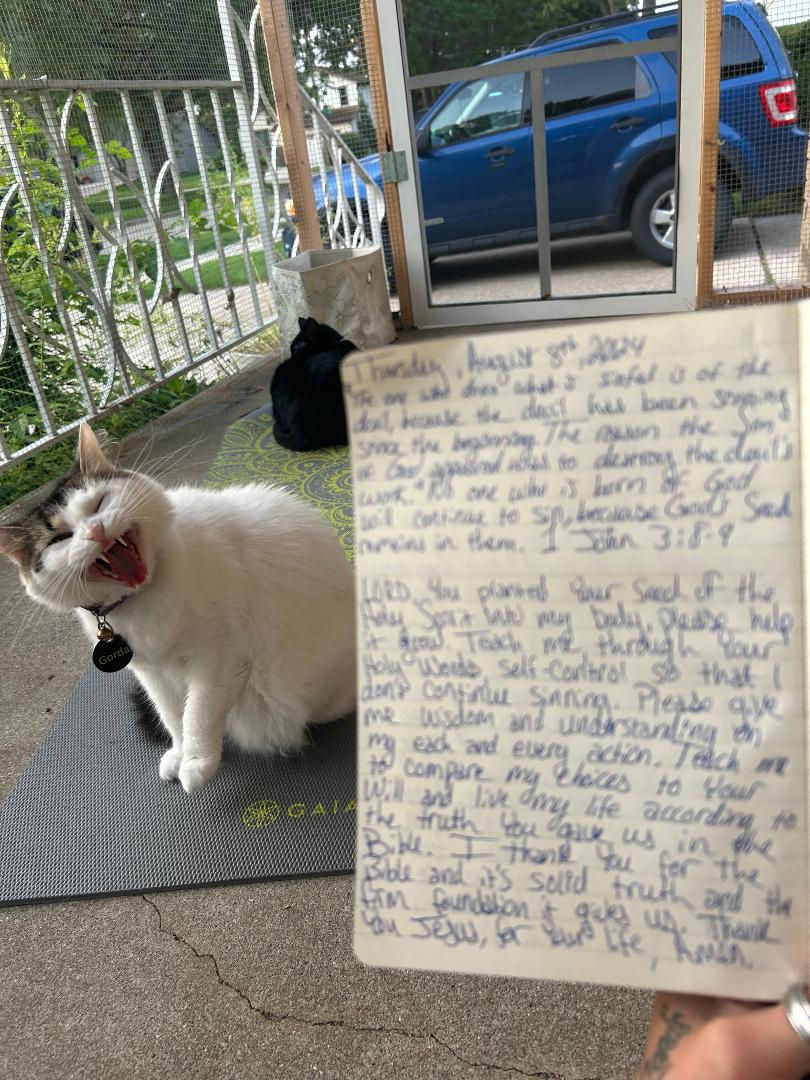 Gorda
GAIA
Thursday, August 8th, 2024
The one who does what is sinful is of the
devil, because the devil has been sinning
since the beginning. The reason the Son
of God appeared was to destroy the devil's
work. No one who is born of God
will continue to sin, because God's Seed
remains in them. 1 John 3:8-9
LORD You planted Your Seed of the
Holy Spirit into my body, please help
it grow. Teach me through Your
Holy Words self-control so that I
don't continue sinning. Please give
me wisdom and understanding on
my each and every action. Teach me
to compare my choices to Your
Will and live my life according to
the truth You gave us in the
Bible. I thank You for the
Bible and it's solid truth and the
firm foundation it gives us. Thank
You Jesus, for Your life, Amen